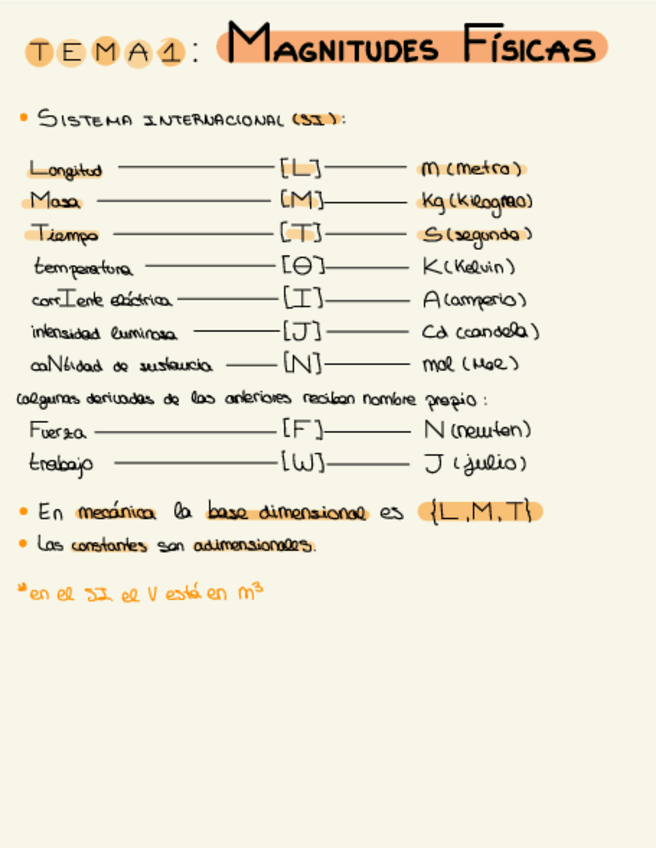 TEMA1: MAGNITUDES FÍSICAS
• SISTEMA INTERNACIONAL (SI):
Longitud [L] m (metro)
Masa [M] Kg (Kilogramo)
Tiempo [T] S (segundo)
temperatura [Θ] K (Kelvin)
corrIente eléctrica [I] A (amperio)
intensidad luminosa [J] Cd (candela)
caNtidad de sustancia [N] mol (Mol)
(algunas derivadas de las anteriores reciben nombre propio:
Fuerza [F] N (newton)
trabajo [W] J (julio)
• En mecánica la base dimensional es {L,M,T}
• Las constantes son adimensionales.
*en el SI el V está en m³